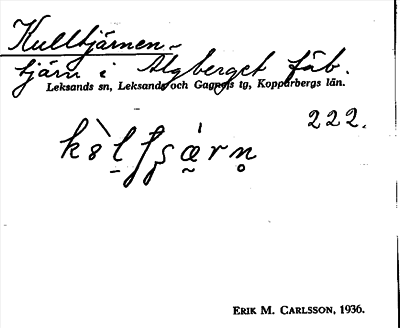 Kulltjärnen
tjärn i Älgberget fäb.
Leksands sn, Leksands och Gagnefs tg, Kopparbergs län.
222.
ERIK M. CARLSSON, 1936.